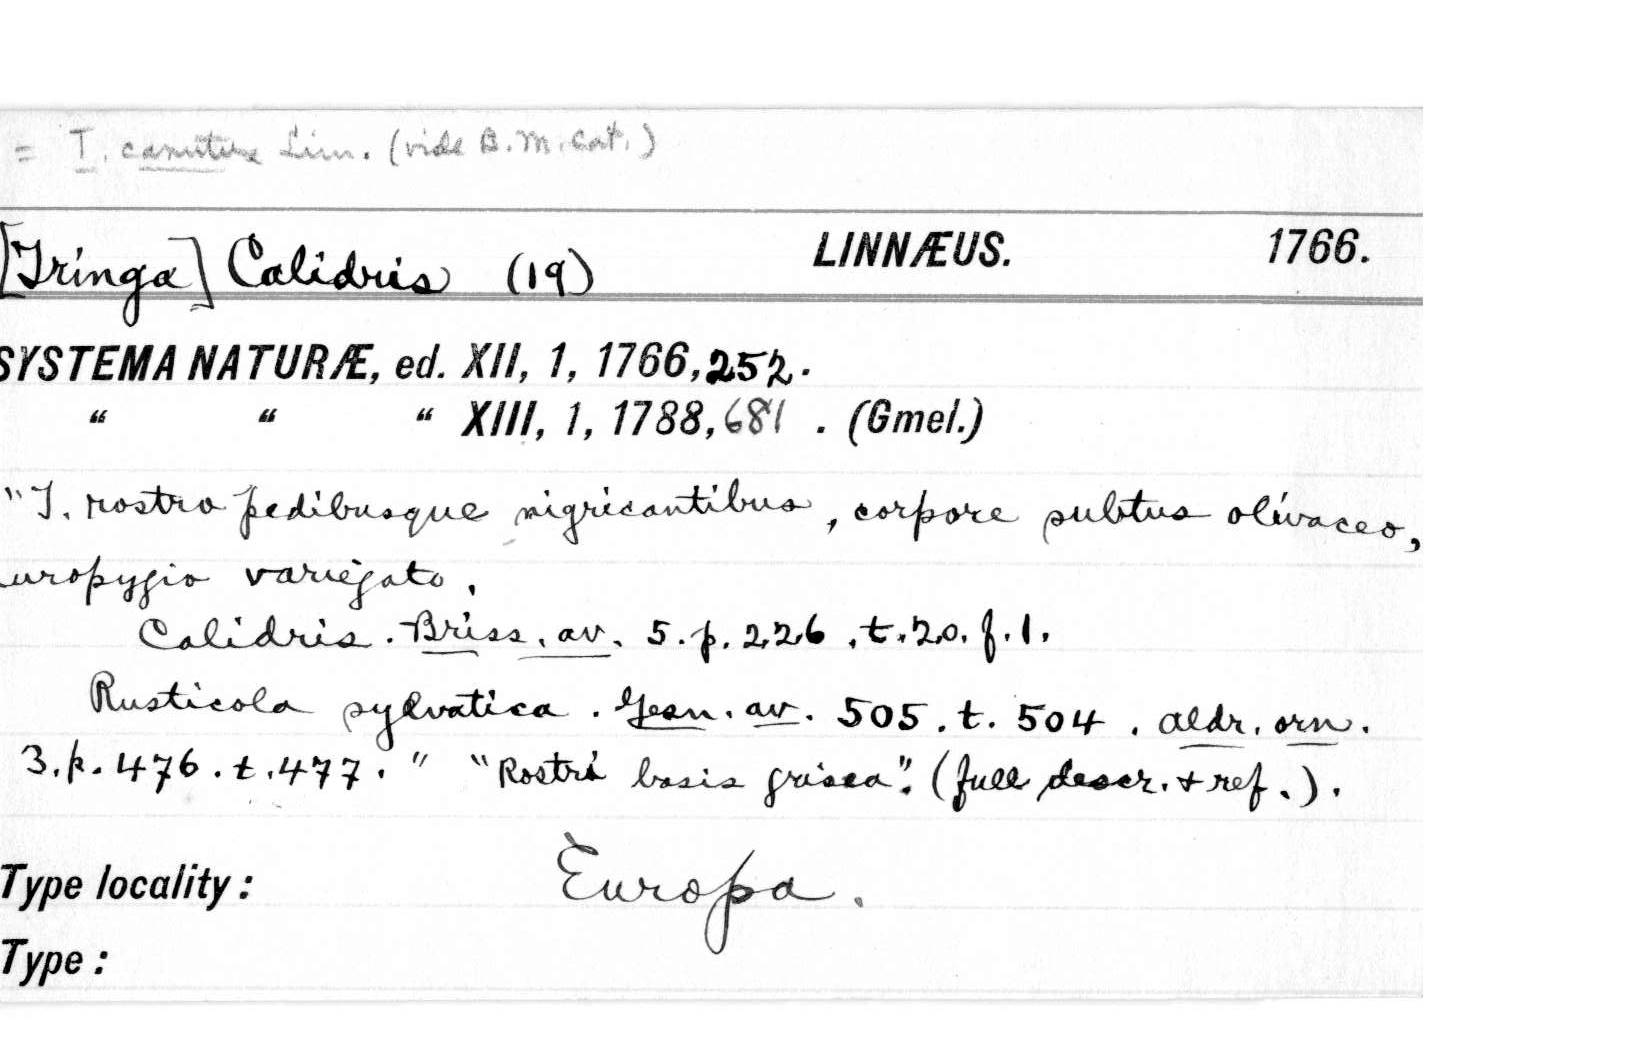 = T. canutus Linn. (vide B.M. Cat.)
[Tringa] Calidris (19) LINNÆUS. 1766.
SYSTEMA NATURÆ, ed. XII, 1, 1766, 252.
“ “ “ XIII, 1, 1788, 681. (Gmel.)
"T. rostro pedibusque nigricantibus, corpore subtus olivaceo,
uropygio variegato.
Calidris. Briss. av. 5. p. 226. t. 20. f. 1.
Rusticola sylvatica. Gesn. av. 505. t. 504. aldr. orn.
3. p. 476. t. 477." "Rostri basis grisea". (full descr. + ref.).
Type locality: Europa.
Type: